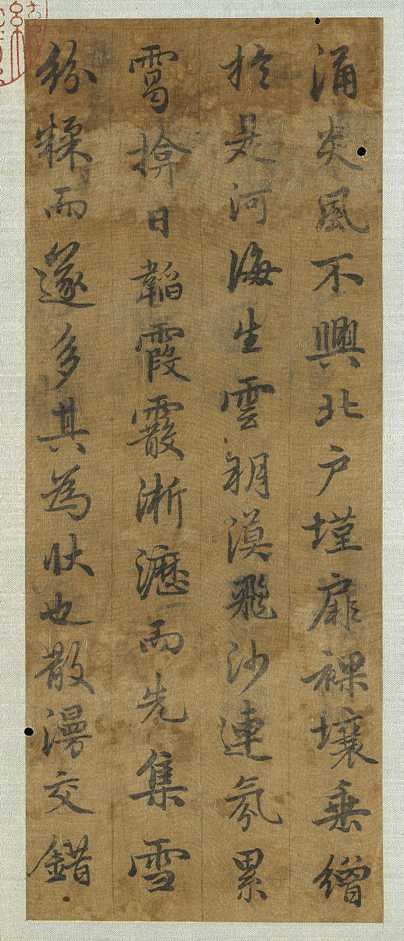 涌炎風不興北户墐扉裸壤垂繒
於是河海生雲朔漠飛沙連氛累
靄揜日韜霞霰淅瀝而先集雪
粉糅而遂多其為狀也散漫交錯